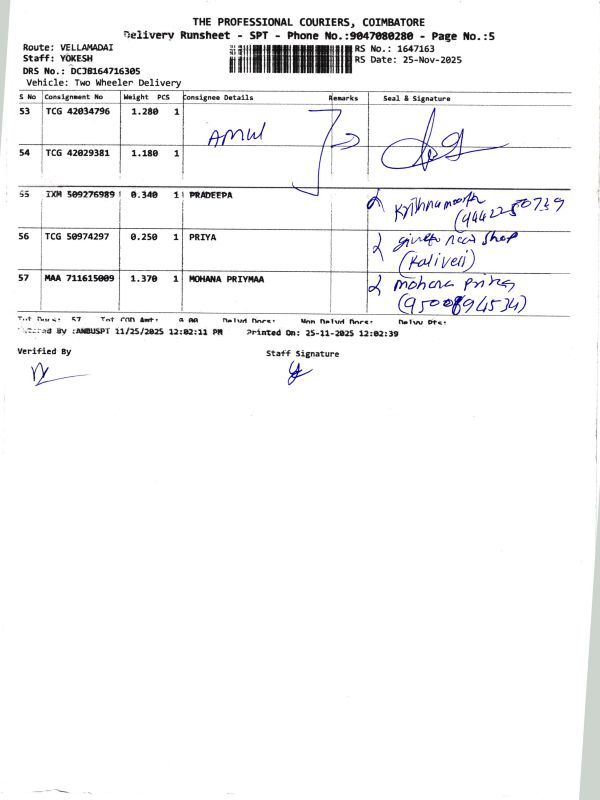 THE PROFESSIONAL COURIERS, COIMBATORE
Delivery Runsheet - SPT - Phone No.:9047080280 - Page No.:5
Route: VELLAMADAI
Staff: YOKESH
DRS No.: DCJ8164716305
Vehicle: Two Wheeler Delivery
RS No.: 1647163
RS Date: 25-Nov-2025
S No Consignment No Weight PCS Consignee Details Remarks Seal & Signature
53 TCG 42034796 1.280 1
AMUl
54 TCG 42029381 1.180 1
55 IXM 509276989 0.340 1 PRADEEPA
Krithnamoorthy
56 TCG 50974297 0.250 1 PRIYA
shop
(Kaliveli)
57 MAA 711615009 1.370 1 MOHANA PRIYMAA
mohana priya
(9500894534)
Tot Docs: 57 Tot COD Amt: 0.00 Delvd Docs: Non Delvd Docs: Delvy Pts:
Entered By :ANBUSPT 11/25/2025 12:02:11 PM Printed On: 25-11-2025 12:02:39
Verified By
Staff Signature